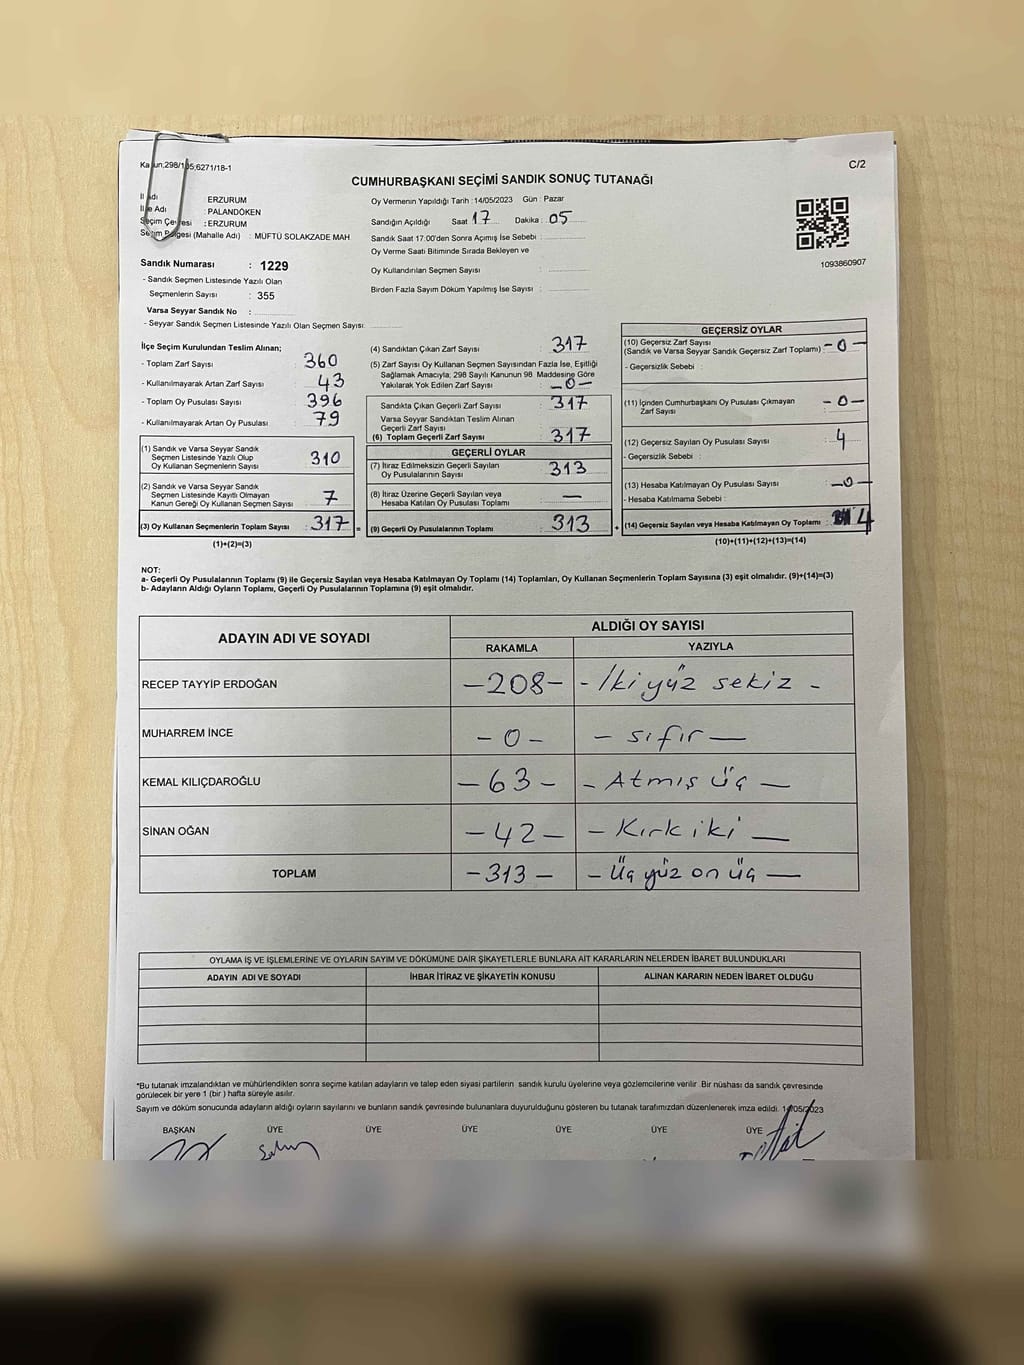 Kanun,298/105,6271/18-1
C/2
CUMHURBAŞKANI SEÇİMİ SANDIK SONUÇ TUTANAĞI
İl Adı : ERZURUM
İlçe Adı : PALANDÖKEN
Seçim Çevresi : ERZURUM
Seçim Bölgesi (Mahalle Adı) : MÜFTÜ SOLAKZADE MAH
Oy Vermenin Yapıldığı Tarih :14/05/2023 Gün : Pazar
Sandığın Açıldığı Saat 17 Dakika : 05
Sandık Saat 17:00'den Sonra Açımış İse Sebebi :
Oy Verme Saati Bitiminde Sırada Bekleyen ve
Oy Kullandırılan Seçmen Sayısı :
Birden Fazla Sayım Döküm Yapılmış İse Sayısı :
1093860907
Sandık Numarası : 1229
- Sandık Seçmen Listesinde Yazılı Olan
Seçmenlerin Sayısı : 355
Varsa Seyyar Sandık No :
- Seyyar Sandık Seçmen Listesinde Yazılı Olan Seçmen Sayısı:
İlçe Seçim Kurulundan Teslim Alınan;
- Toplam Zarf Sayısı : 360
- Kullanılmayarak Artan Zarf Sayısı : 43
- Toplam Oy Pusulası Sayısı : 396
- Kullanılmayarak Artan Oy Pusulası : 79
(1) Sandık ve Varsa Seyyar Sandık
Seçmen Listesinde Yazılı Olup
Oy Kullanan Seçmenlerin Sayısı : 310
(2) Sandık ve Varsa Seyyar Sandık
Seçmen Listesinde Kayıtlı Olmayan
Kanun Gereği Oy Kullanan Seçmen Sayısı : 7
(3) Oy Kullanan Seçmenlerin Toplam Sayısı : 317 =
(1)+(2)=(3)
(4) Sandıktan Çıkan Zarf Sayısı : 317
(5) Zarf Sayısı Oy Kullanan Seçmen Sayısından Fazla İse, Eşitliği
Sağlamak Amacıyla, 298 Sayılı Kanunun 98. Maddesine Göre
Yakılarak Yok Edilen Zarf Sayısı : -0-
Sandıkta Çıkan Geçerli Zarf Sayısı : 317
Varsa Seyyar Sandıktan Teslim Alınan
Geçerli Zarf Sayısı :
(6) Toplam Geçerli Zarf Sayısı : 317
GEÇERLİ OYLAR
(7) İtiraz Edilmeksizin Geçerli Sayılan
Oy Pusulalarının Sayısı : 313
(8) İtiraz Üzerine Geçerli Sayılan veya
Hesaba Katılan Oy Pusulası Toplamı : —
(9) Geçerli Oy Pusulalarının Toplamı : 313 +
GEÇERSİZ OYLAR
(10) Geçersiz Zarf Sayısı
(Sandık ve Varsa Seyyar Sandık Geçersiz Zarf Toplamı) : -0-
- Geçersizlik Sebebi :
(11) İçinden Cumhurbaşkanı Oy Pusulası Çıkmayan
Zarf Sayısı : -0-
(12) Geçersiz Sayılan Oy Pusulası Sayısı : 4
- Geçersizlik Sebebi :
(13) Hesaba Katılmayan Oy Pusulası Sayısı : -0-
- Hesaba Katılmama Sebebi :
(14) Geçersiz Sayılan veya Hesaba Katılmayan Oy Toplamı : 4
(10)+(11)+(12)+(13)=(14)
NOT:
a- Geçerli Oy Pusulalarının Toplamı (9) ile Geçersiz Sayılan veya Hesaba Katılmayan Oy Toplamı (14) Toplamları, Oy Kullanan Seçmenlerin Toplam Sayısına (3) eşit olmalıdır. (9)+(14)=(3)
b- Adayların Aldığı Oyların Toplamı, Geçerli Oy Pusulalarının Toplamına (9) eşit olmalıdır.
ADAYIN ADI VE SOYADI
ALDIĞI OY SAYISI
RAKAMLA YAZIYLA
RECEP TAYYİP ERDOĞAN -208- - İki yüz sekiz -
MUHARREM İNCE -0- - sıfır -
KEMAL KILIÇDAROĞLU -63- - Atmış üç -
SİNAN OĞAN -42- - Kırk iki -
TOPLAM -313- - Üç yüz on üç -
OYLAMA İŞ VE İŞLEMLERİNE VE OYLARIN SAYIM VE DÖKÜMÜNE DAİR ŞİKAYETLERLE BUNLARA AİT KARARLARIN NELERDEN İBARET BULUNDUKLARI
ADAYIN ADI VE SOYADI İHBAR İTİRAZ VE ŞİKAYETİN KONUSU ALINAN KARARIN NEDEN İBARET OLDUĞU
*Bu tutanak imzalandıktan ve mühürlendikten sonra seçime katılan adayların ve talep eden siyasi partilerin sandık kurulu üyelerine veya gözlemcilerine verilir. Bir nüshası da sandık çevresinde
görülecek bir yere 1 (bir ) hafta süreyle asılır.
Sayım ve döküm sonucunda adayların aldığı oyların sayılarını ve bunların sandık çevresinde bulunanlara duyurulduğunu gösteren bu tutanak tarafımızdan düzenlenerek imza edildi. 14/05/2023
BAŞKAN ÜYE ÜYE ÜYE ÜYE ÜYE ÜYE